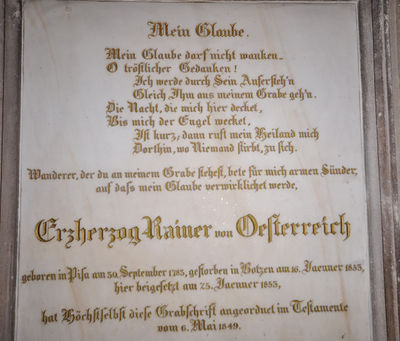 Mein Glaube.
Mein Glaube darf nicht wanken,
O tröstlicher Gedanken!
Ich werde durch Sein Aufersteh'n
Gleich Ihm aus meinem Grabe geh'n.
Die Nacht, die mich hier decket,
Bis mich der Engel wecket,
Ist kurz; dann ruft mein Heiland mich
Dorthin, wo Niemand stirbt, zu sich.
Wanderer, der du an meinem Grabe stehest, bete für mich armen Sünder,
auf dass mein Glaube verwirklichet werde,
Erzherzog Rainer von Oesterreich
geboren in Pisa am 30. September 1783, gestorben in Botzen am 16. Jaenner 1853,
hier beigesetzt am 25. Jaenner 1853,
hat Höchstselbst diese Grabschrift angeordnet im Testamente
vom 6. Mai 1849.